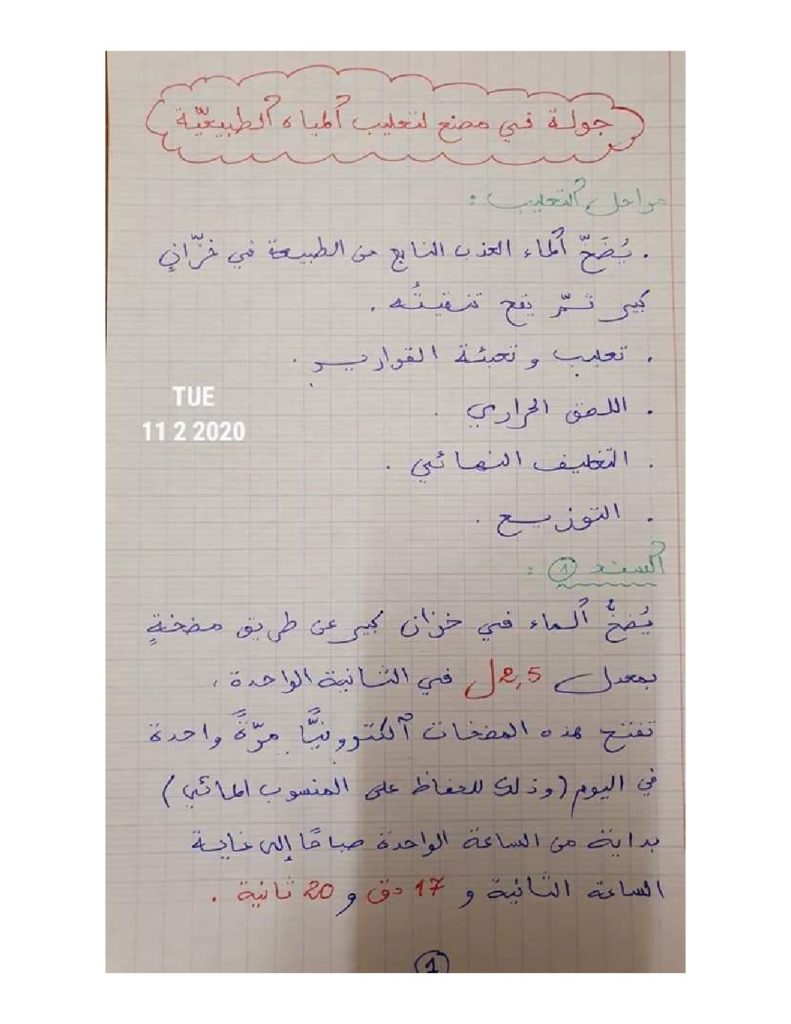 جولة في مصنع لتعليب ٱلمياه ٱلطبيعيّة
مراحل ٱلتعليب :
. يُضَخّ ٱلماء العذب النابع من الطبيعة في خزّانٍ
كبير ثمّ يقع تنقيتُه .
. تعليب و تعبئة القوارير .
. اللصق الحراري .
. التغليف النهائي .
. التوزيع .
ٱلسند 1 :
يُضخُّ ٱلماء في خزان كبير عن طريق مضخةٍ
بمعدل 2,5ل في الثانية الواحدة ،
تفتح هذه المضخات ٱلكترونيًّا مرّةً واحدة
في اليوم (وذلك للحفاظ على المنسوب المائي)
بداية من الساعة الواحدة صباحًا إلى غاية
الساعة الثانية و 17 دق و 20 ثانية .
1
TUE
11 2 2020